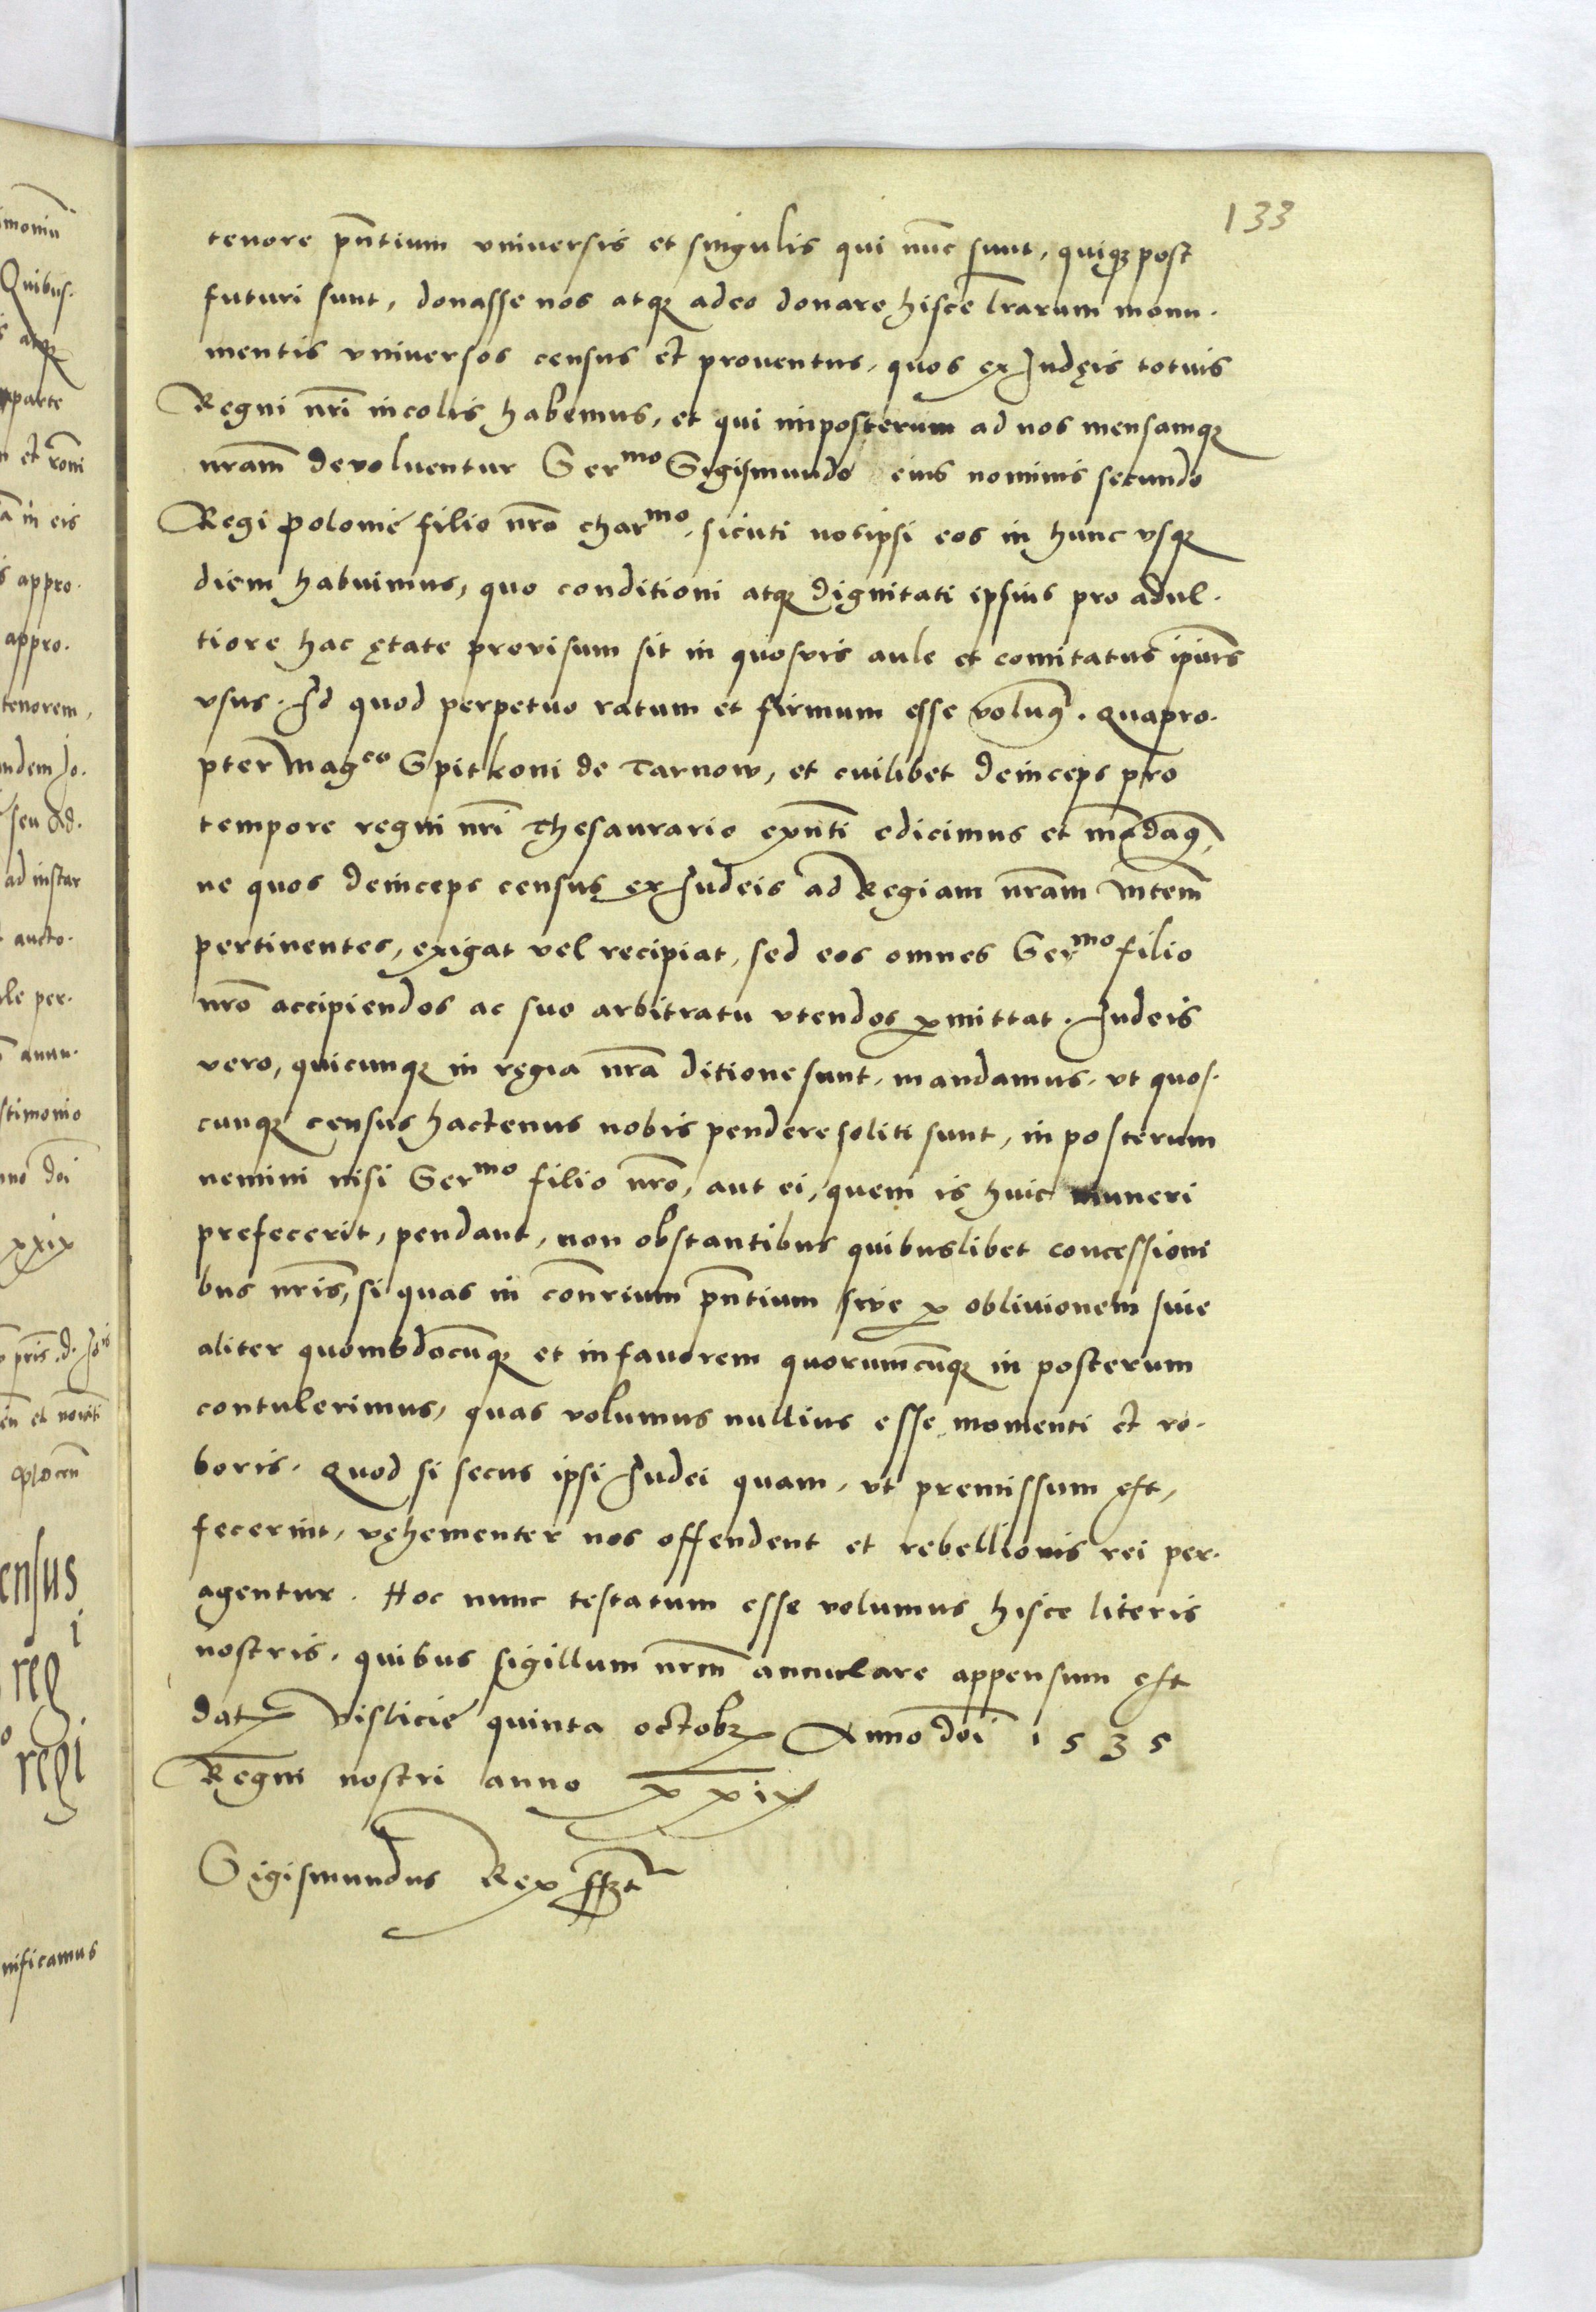 133
tenore pñtium vniuersis et singulis qui nũc sunt, quiqꝫ post
futuri sunt, donasse nos atqꝫ adeo donare hisce lr̃arum monu-
mentis vniuersos census et prouentus, quos ex Judęis totius
Regni nr̃i incolis habemus, et qui imposterum ad nos mensamqꝫ
nr̃am devoluentur Serᵐᵒ Sigismundo eius nominis secundo
Regi polonie filio nr̃o charᵐᵒ, sicuti nosipsi eos in hunc vsqꝫ
diem habuimus, quo conditioni atqꝫ dignitati ipsius pro adul-
tiore hac ętate provisum sit in quosvis aule et comitatus ipi̅us
vsus. Id quod perpetuo ratum et firmum esse volumꝰ. Quapro-
pter Magᶜᵒ Spitkoni de Tarnow, et cuilibet deinceps pro
tempore regni nr̃i Thesaurario exñti edicimus et mãdamꝰ,
ne quos deinceps census ex Judeis ad Regiam nr̃am Mtem̃
pertinentes, exigat vel recipiat, sed eos omnes Serᵐᵒ filio
nr̃o accipiendos ac suo arbitratu vtendos ꝑmittat. Judeis
vero, quicunqꝫ in regia nr̃a ditione sunt, mandamus, vt quos-
cunqꝫ census hactenus nobis pendere soliti sunt, in posterum
nemini nisi Serᵐᵒ filio nr̃o, aut ei, quem is huic muneri
prefecerit, pendant, non obstantibus quibuslibet concessioni
bus nr̃is, si quas in con̅rium pñtium sive ꝑ obliuionem siue
aliter quomodocũqꝫ et in fauorem quorumcũqꝫ in posterum
contulerimus, quas volumus nullius esse momenti et ro-
boris. Quod si secus ipsi Judei quam, vt premissum est,
fecerint, vehementer nos offendent et rebellionis rei per-
agentur. Hoc nunc testatum esse volumus hisce literis
nostris, quibus sigillum nr̃m annulare appensum est
datꝭ Visliciē quinta octobꝫ Anno doi̅ 1535
Regni nostri anno xxix
Sigismundus Rex